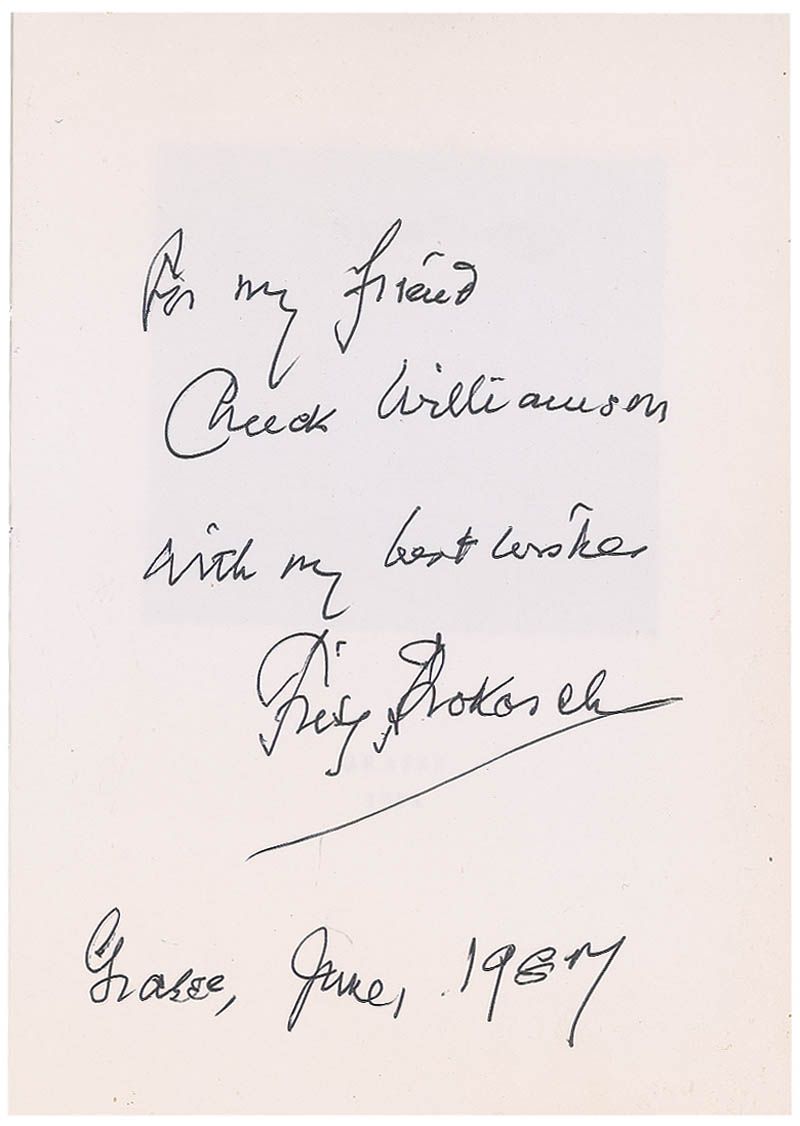 For my friend
Chuck Williamson
with my best wishes
Fritz Prokosch
Grasse, June, 1987